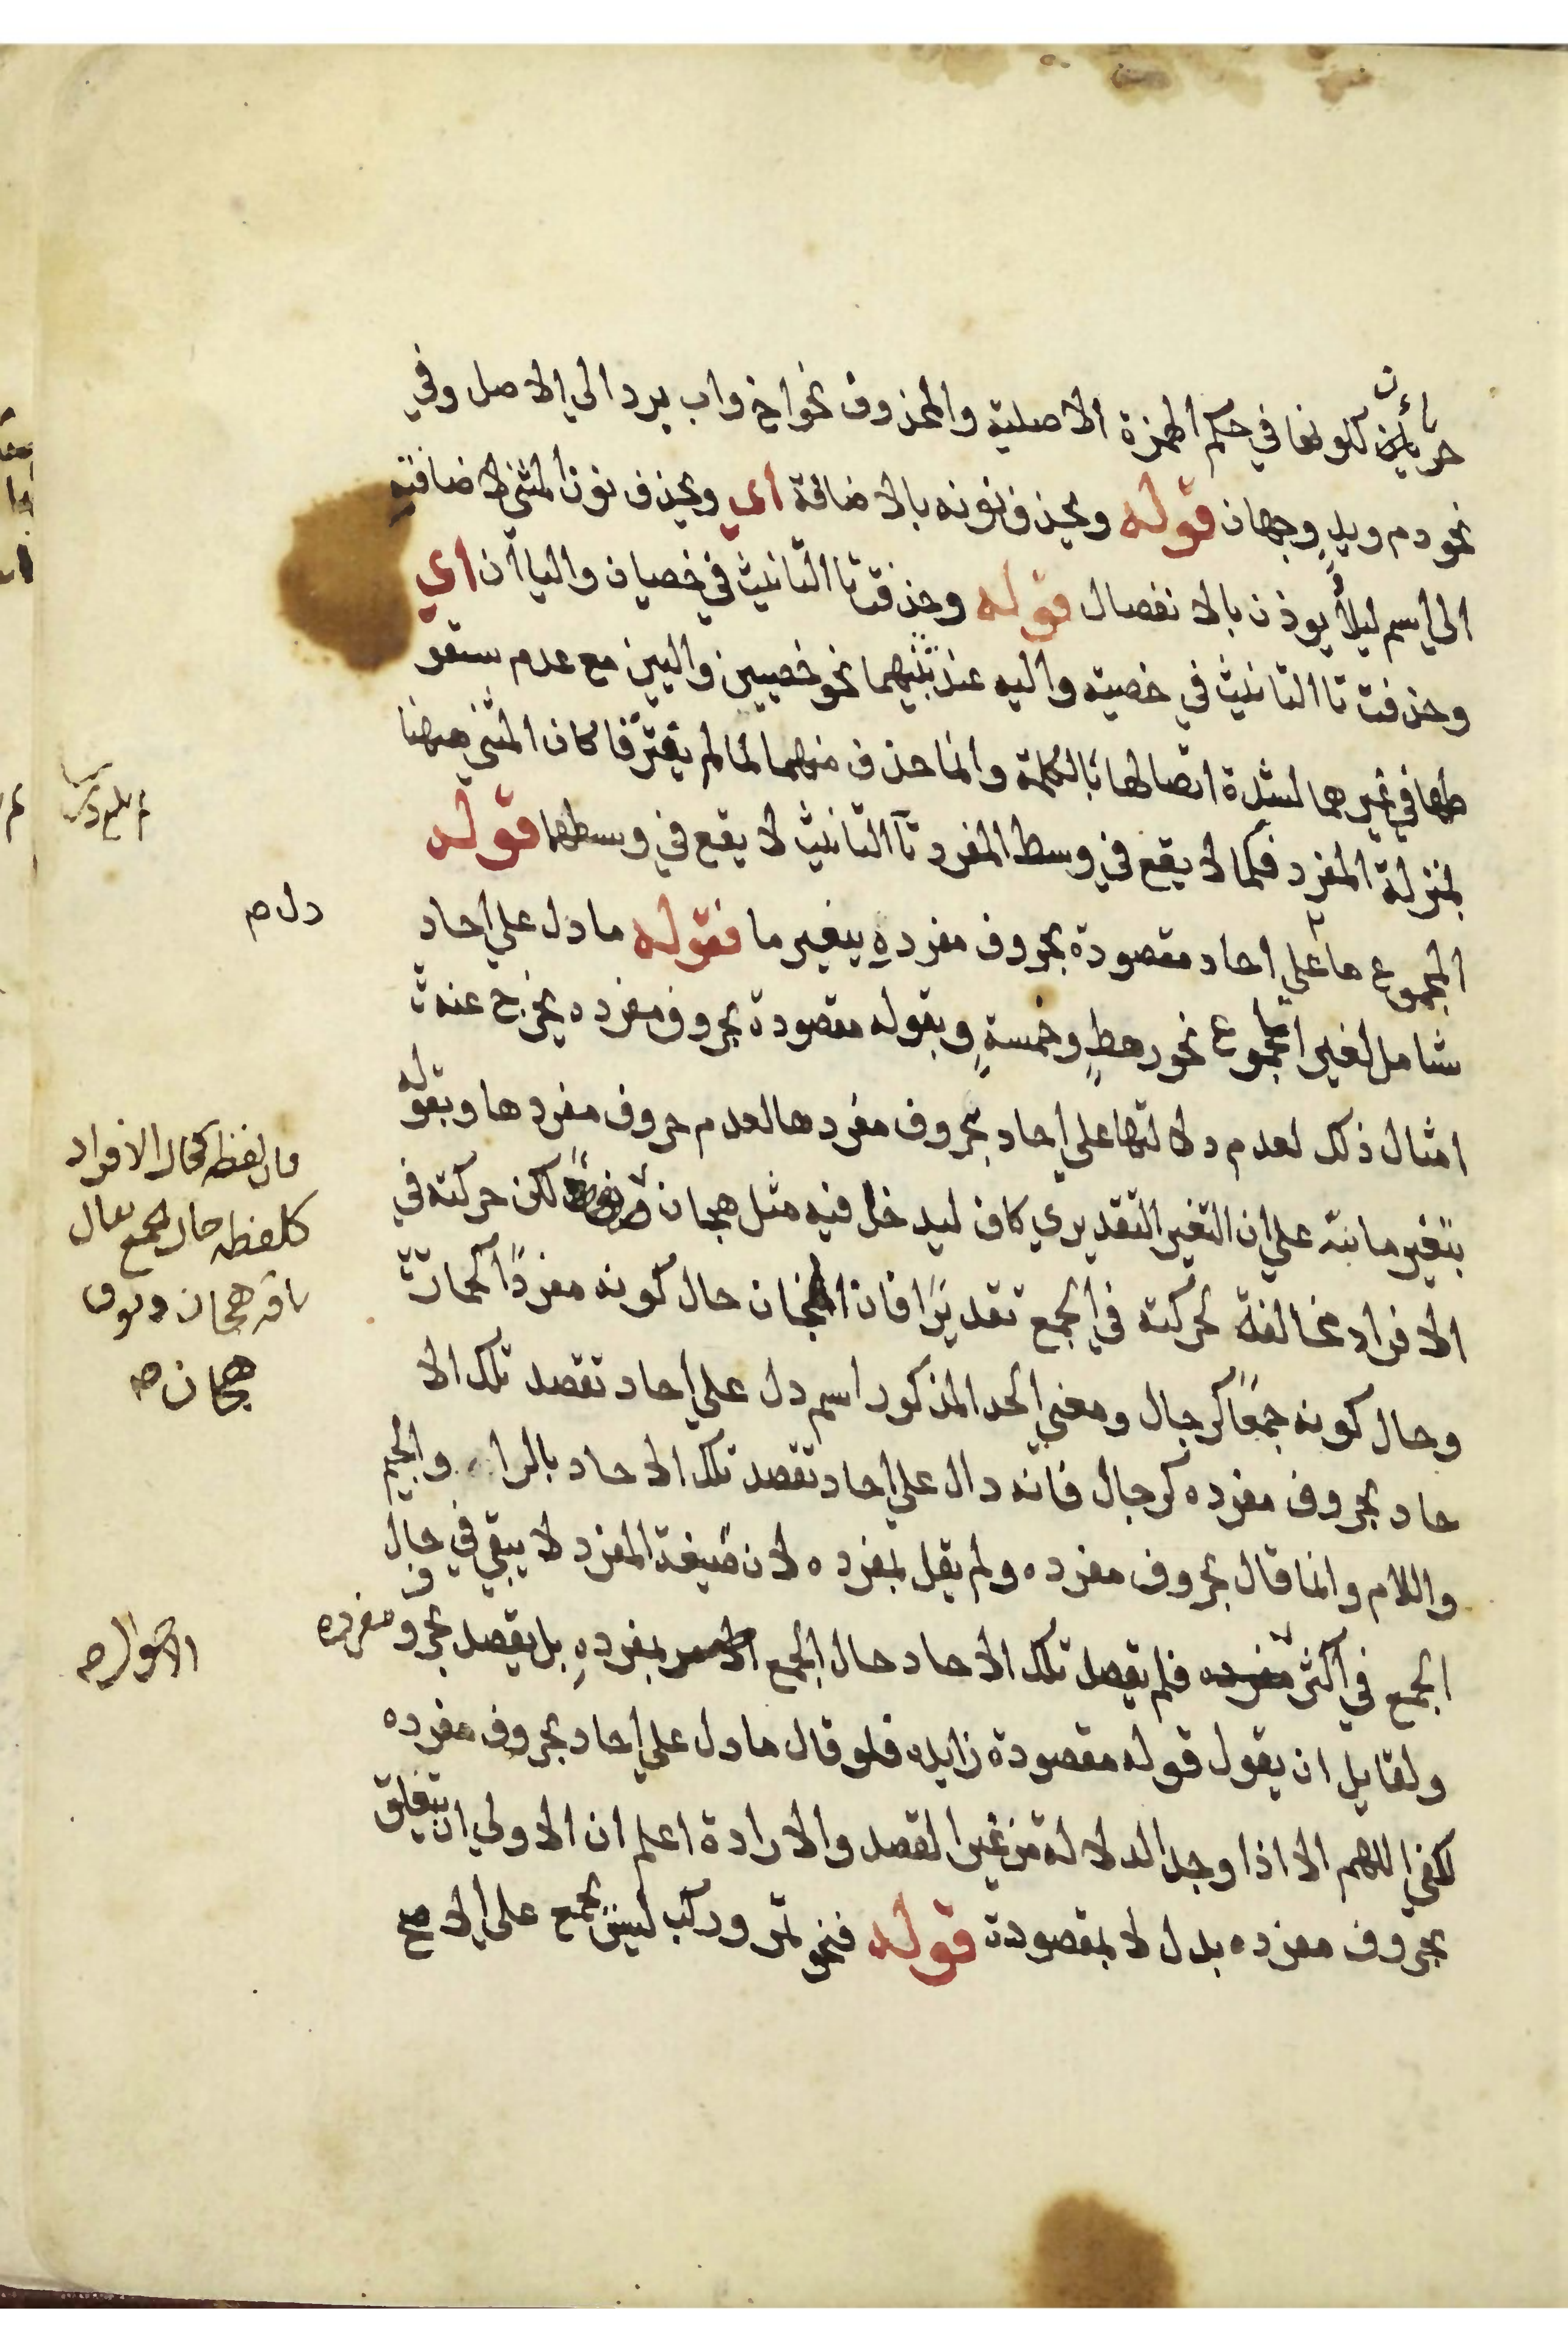 حرباءين لكونها في حكم الهمزة الاصلية والمحذوف نحو اخ واب يرد الي الاصل وفي
نحو دم ويدٍ وجهان قوله ويحذف نونه بالاضافة اي ويحذف نون المثني لاضافته
الي اسم ليلا يوذن بالانفصال قوله وحذفت تا التانيث في خصيان واليان اي
وحذفت تا التانيث في خصيته واليه عند تثنيهما نحو خصيين واليين مع عدم سقو
طها في غيرهما لشدة اتصالها بالكلمة وانما حذف منهما لما لم يفترقا كان المثني منهما
بمنزلة المفرد فكما لا يقع في وسط المفرد تا التانيث لا يقع في وسطهما قوله
المجموع ما علي احاد مقصودة بحروف مفرده بتغير ما فقوله ما دل علي احاد
شامل لغير المجموع نحو رهطٍ وخمسةٍ وبقوله مقصودة بحروف مفرده يخرج عنه
امثال ذلك لعدم دلالتها علي احاد بحروف مفردها لعدم حروف مفردها وبقوله
بتغير ما نبه علي ان التغير التقديري كاف ليدخل فيه مثل هجان لكن حركته في
الافراد مخالفة لحركته في الجمع تقديرًا فان الهجان حال كونه مفردًا كحمار
وحال كونه جمعًا كرجال ومعني الحد المذكور اسم دل علي احاد تقصد تلك الا
حاد بحروف مفرده كرجال فانه دال علي احاد تقصد تلك الاحاد بالراء والجيم
واللام وانما قال بحروف مفرده ولم يقل بمفرده لان صيغة المفرد لا يبقي في حال
الجمع في اكثر فلم يقصد تلك الاحاد حال الجمع بمفردهِ بل يقصد بحروف مفرده
ولقايل ان يقول قوله مقصودة زايده فلو قال ما دل علي احاد بحروف مفرده
لكفي اللهم الا اذا وجد الدلالة من غير القصد والارادة اعلم ان الاولي ان يتعلق
بحروف مفرده بدل لا بمقصودة قوله فنحو تمر وركب ليس بجمع علي الاصح
دل ص
فان لفظه كحال الافراد
كلفظه حال الجمع يقال
ناقه هجان ونوق
هجان صه
الاحوال صه